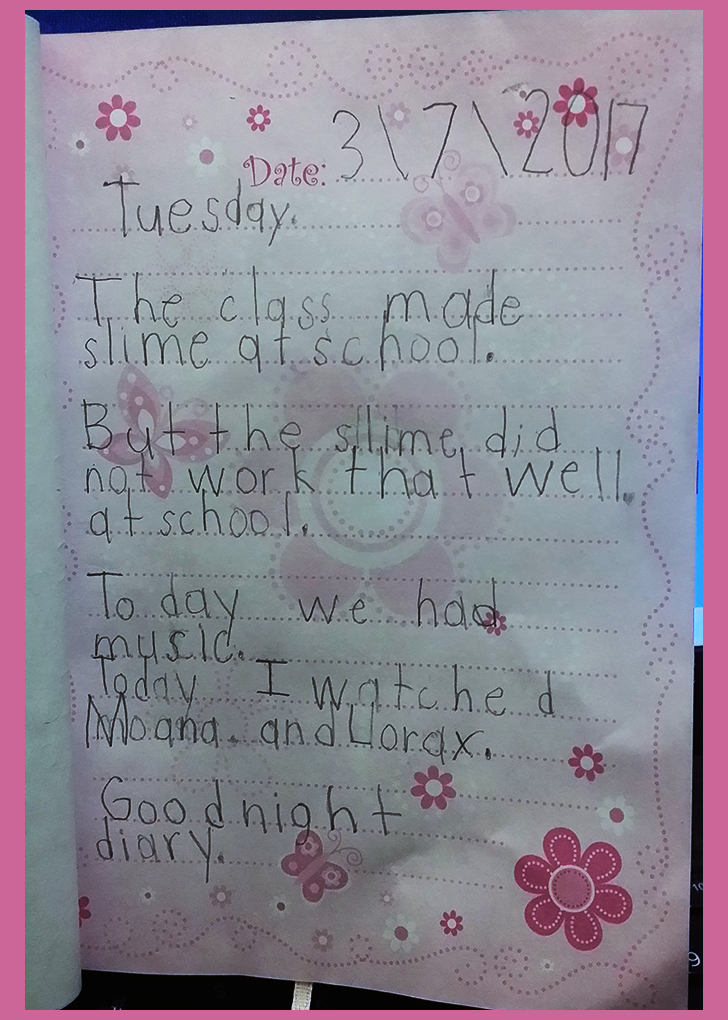 Date: 3\7\2017
Tuesday.
The class made
slime at school.
But the slime did
not work that well.
at school.
To day we had
music.
Today I watched
Moana. and Lorax.
Goodnight
diary.